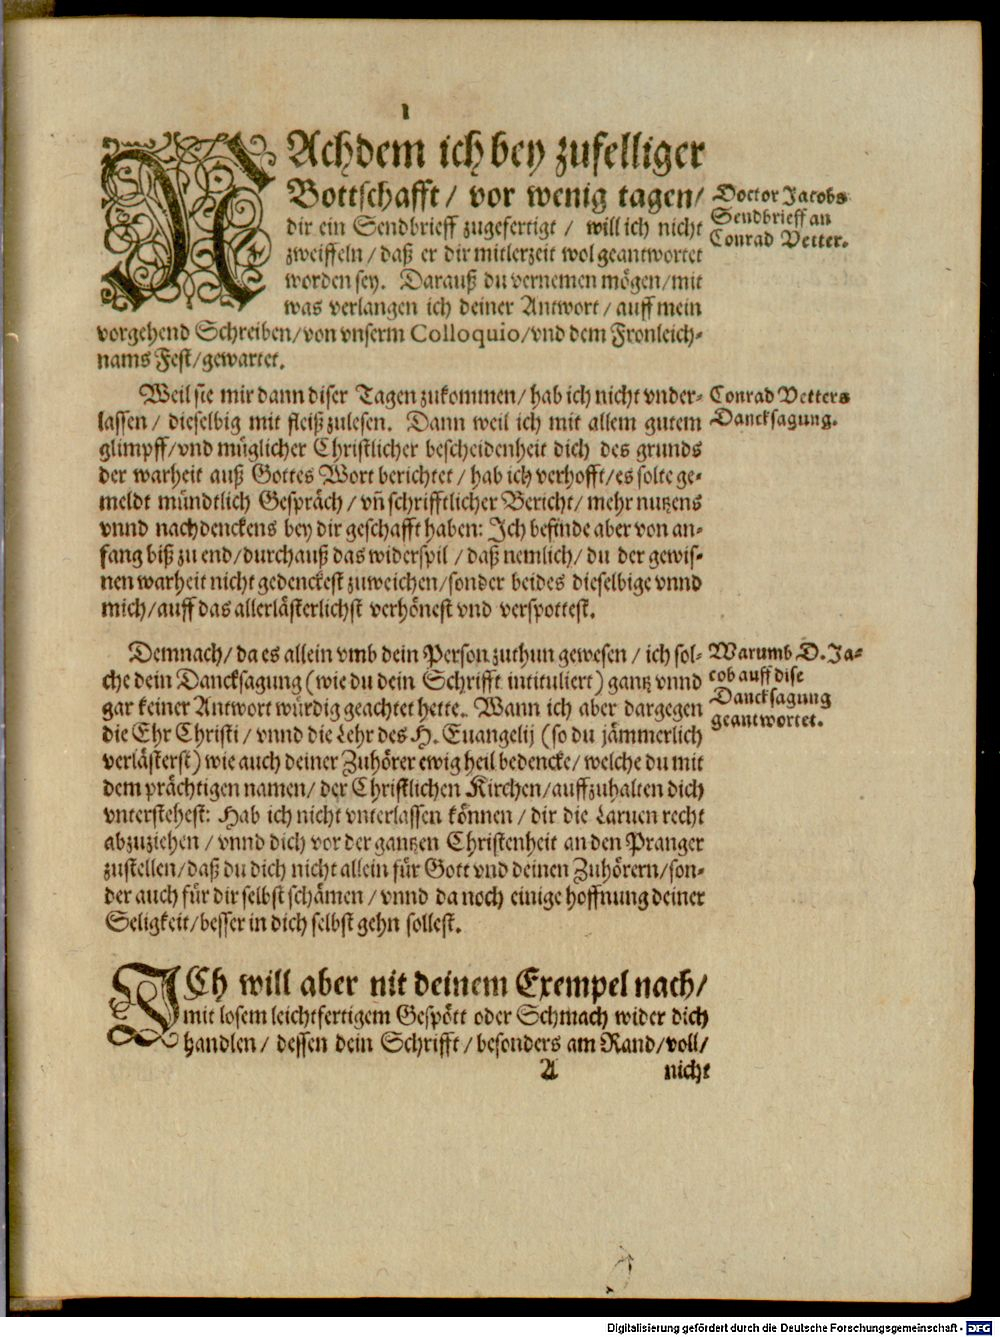 1
NAchdem ich bey zufelliger
Bottschafft / vor wenig tagen /
dir ein Sendbrieff zugefertigt / will ich nicht
zweiffeln / daß er dir mitlerzeit wol geantwortet
worden sey. Darauß du vernemen mögen / mit
was verlangen ich deiner Antwort / auff mein
vorgehend Schreiben / von vnserm Colloquio / vnd dem Fronleich-
nams Fest / gewartet.
Doctor Jacobs
Sendbrieff an
Conrad Vetter.
Weil sie mir dann diser Tagen zukommen / hab ich nicht vnder-
lassen / dieselbig mit fleiß zulesen. Dann weil ich mit allem gutem
glimpff / vnd müglicher Christlicher bescheidenheit dich des grunds
der warheit auß Gottes Wort berichtet / hab ich verhofft / es solte ge-
meldt mündtlich Gespräch / vñ schrifftlicher Bericht / mehr nutzens
vnnd nachdenckens bey dir geschafft haben: Ich befinde aber von an-
fang biß zu end / durchauß das widerspil / daß nemlich / du der gewis-
nen warheit nicht gedenckest zuweichen / sonder beides dieselbige vnnd
mich / auff das allerlästerlichst verhönest vnd verspottest.
Conrad Vetters
Dancksagung.
Demnach / da es allein vmb dein Person zuthun gewesen / ich sol-
che dein Dancksagung (wie du dein Schrifft intituliert) gantz vnnd
gar keiner Antwort würdig geachtet hette. Wann ich aber dargegen
die Ehr Christi / vnnd die Lehr des H. Euangelij (so du jämmerlich
verlästerst) wie auch deiner Zuhörer ewig heil bedencke / welche du mit
dem prächtigen namen / der Christlichen Kirchen / auffzuhalten dich
vnterstehest: Hab ich nicht vnterlassen können / dir die Laruen recht
abzuziehen / vnnd dich vor der gantzen Christenheit an den Pranger
zustellen / daß du dich nicht allein für Gott vnd deinen Zuhörern / son-
der auch für dir selbst schämen / vnnd da noch einige hoffnung deiner
Seligkeit / besser in dich selbst gehn sollest.
Warumb D. Ja-
cob auff dise
Dancksagung
geantwortet.
ICh will aber nit deinem Exempel nach /
mit losem leichtfertigem Gespött oder Schmach wider dich
handlen / dessen dein Schrifft / besonders am Rand / voll /
A nicht
Digitalisierung gefördert durch die Deutsche Forschungsgemeinschaft - DFG